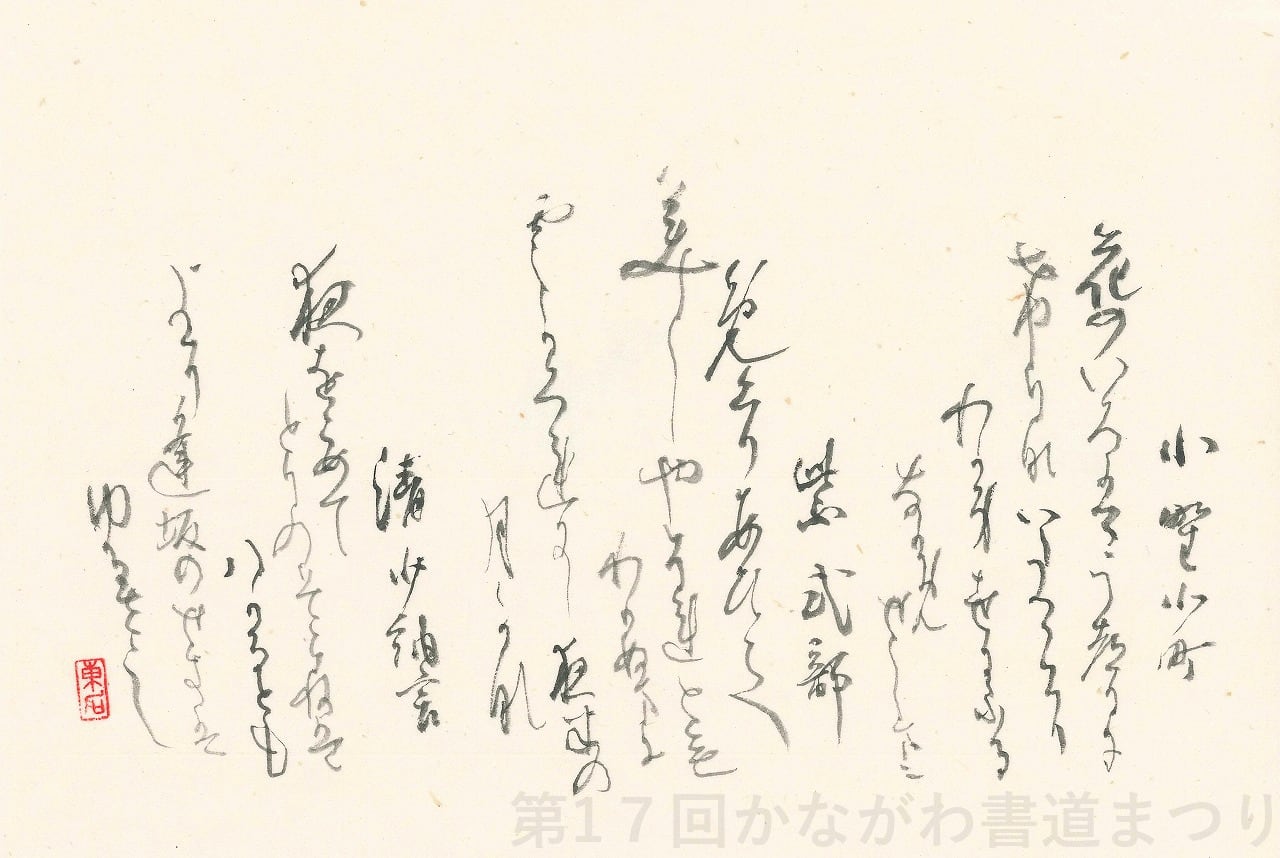 小野小町
花のいろはうつりに
けりないたつらに
わか身世にふる
なかめせしまに
紫式部
免くりあひて
見しやそれとも
わかぬまに
雲かくれにし
夜半の
月かな
清少納言
夜をこめて
とりのそらねは
ハかるとも
よに逢坂のせきは
ゆるさし
東石
第17回かながわ書道まつり